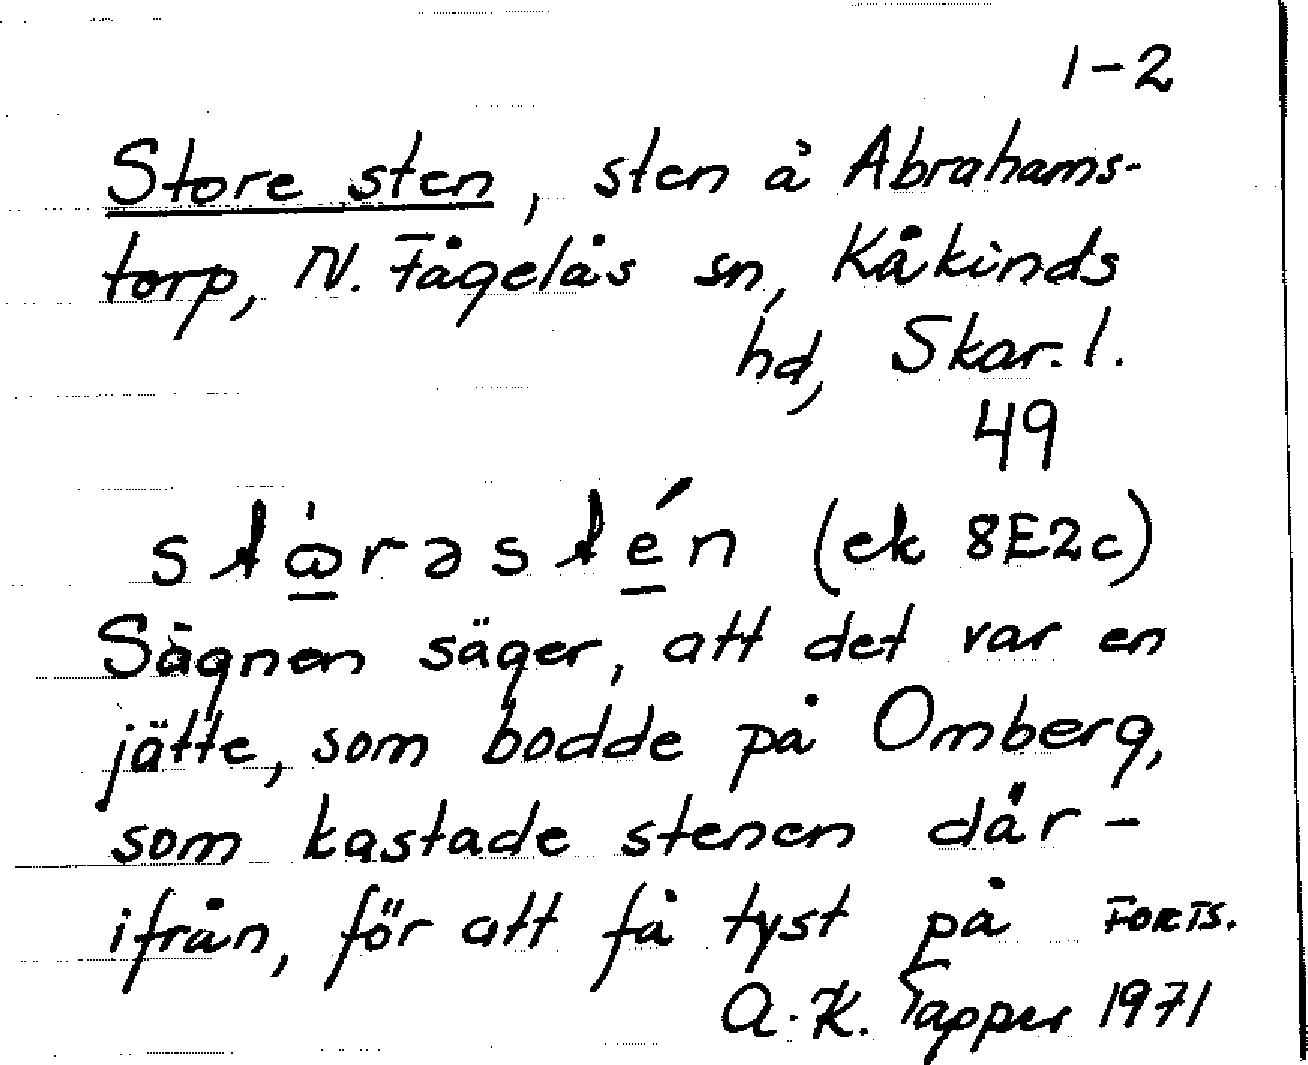 1-2
Store sten, sten å Abrahams-
torp, N. Fågelås sn, Kåkinds
hd, Skar. l.
49
stὼ̲rəsté̲n (ek 8E2c)
Sägnen säger, att det var en
jätte, som bodde på Omberg,
som kastade stenen där-
ifrån, för att få tyst på FORTS.
A.K. Tapper 1971